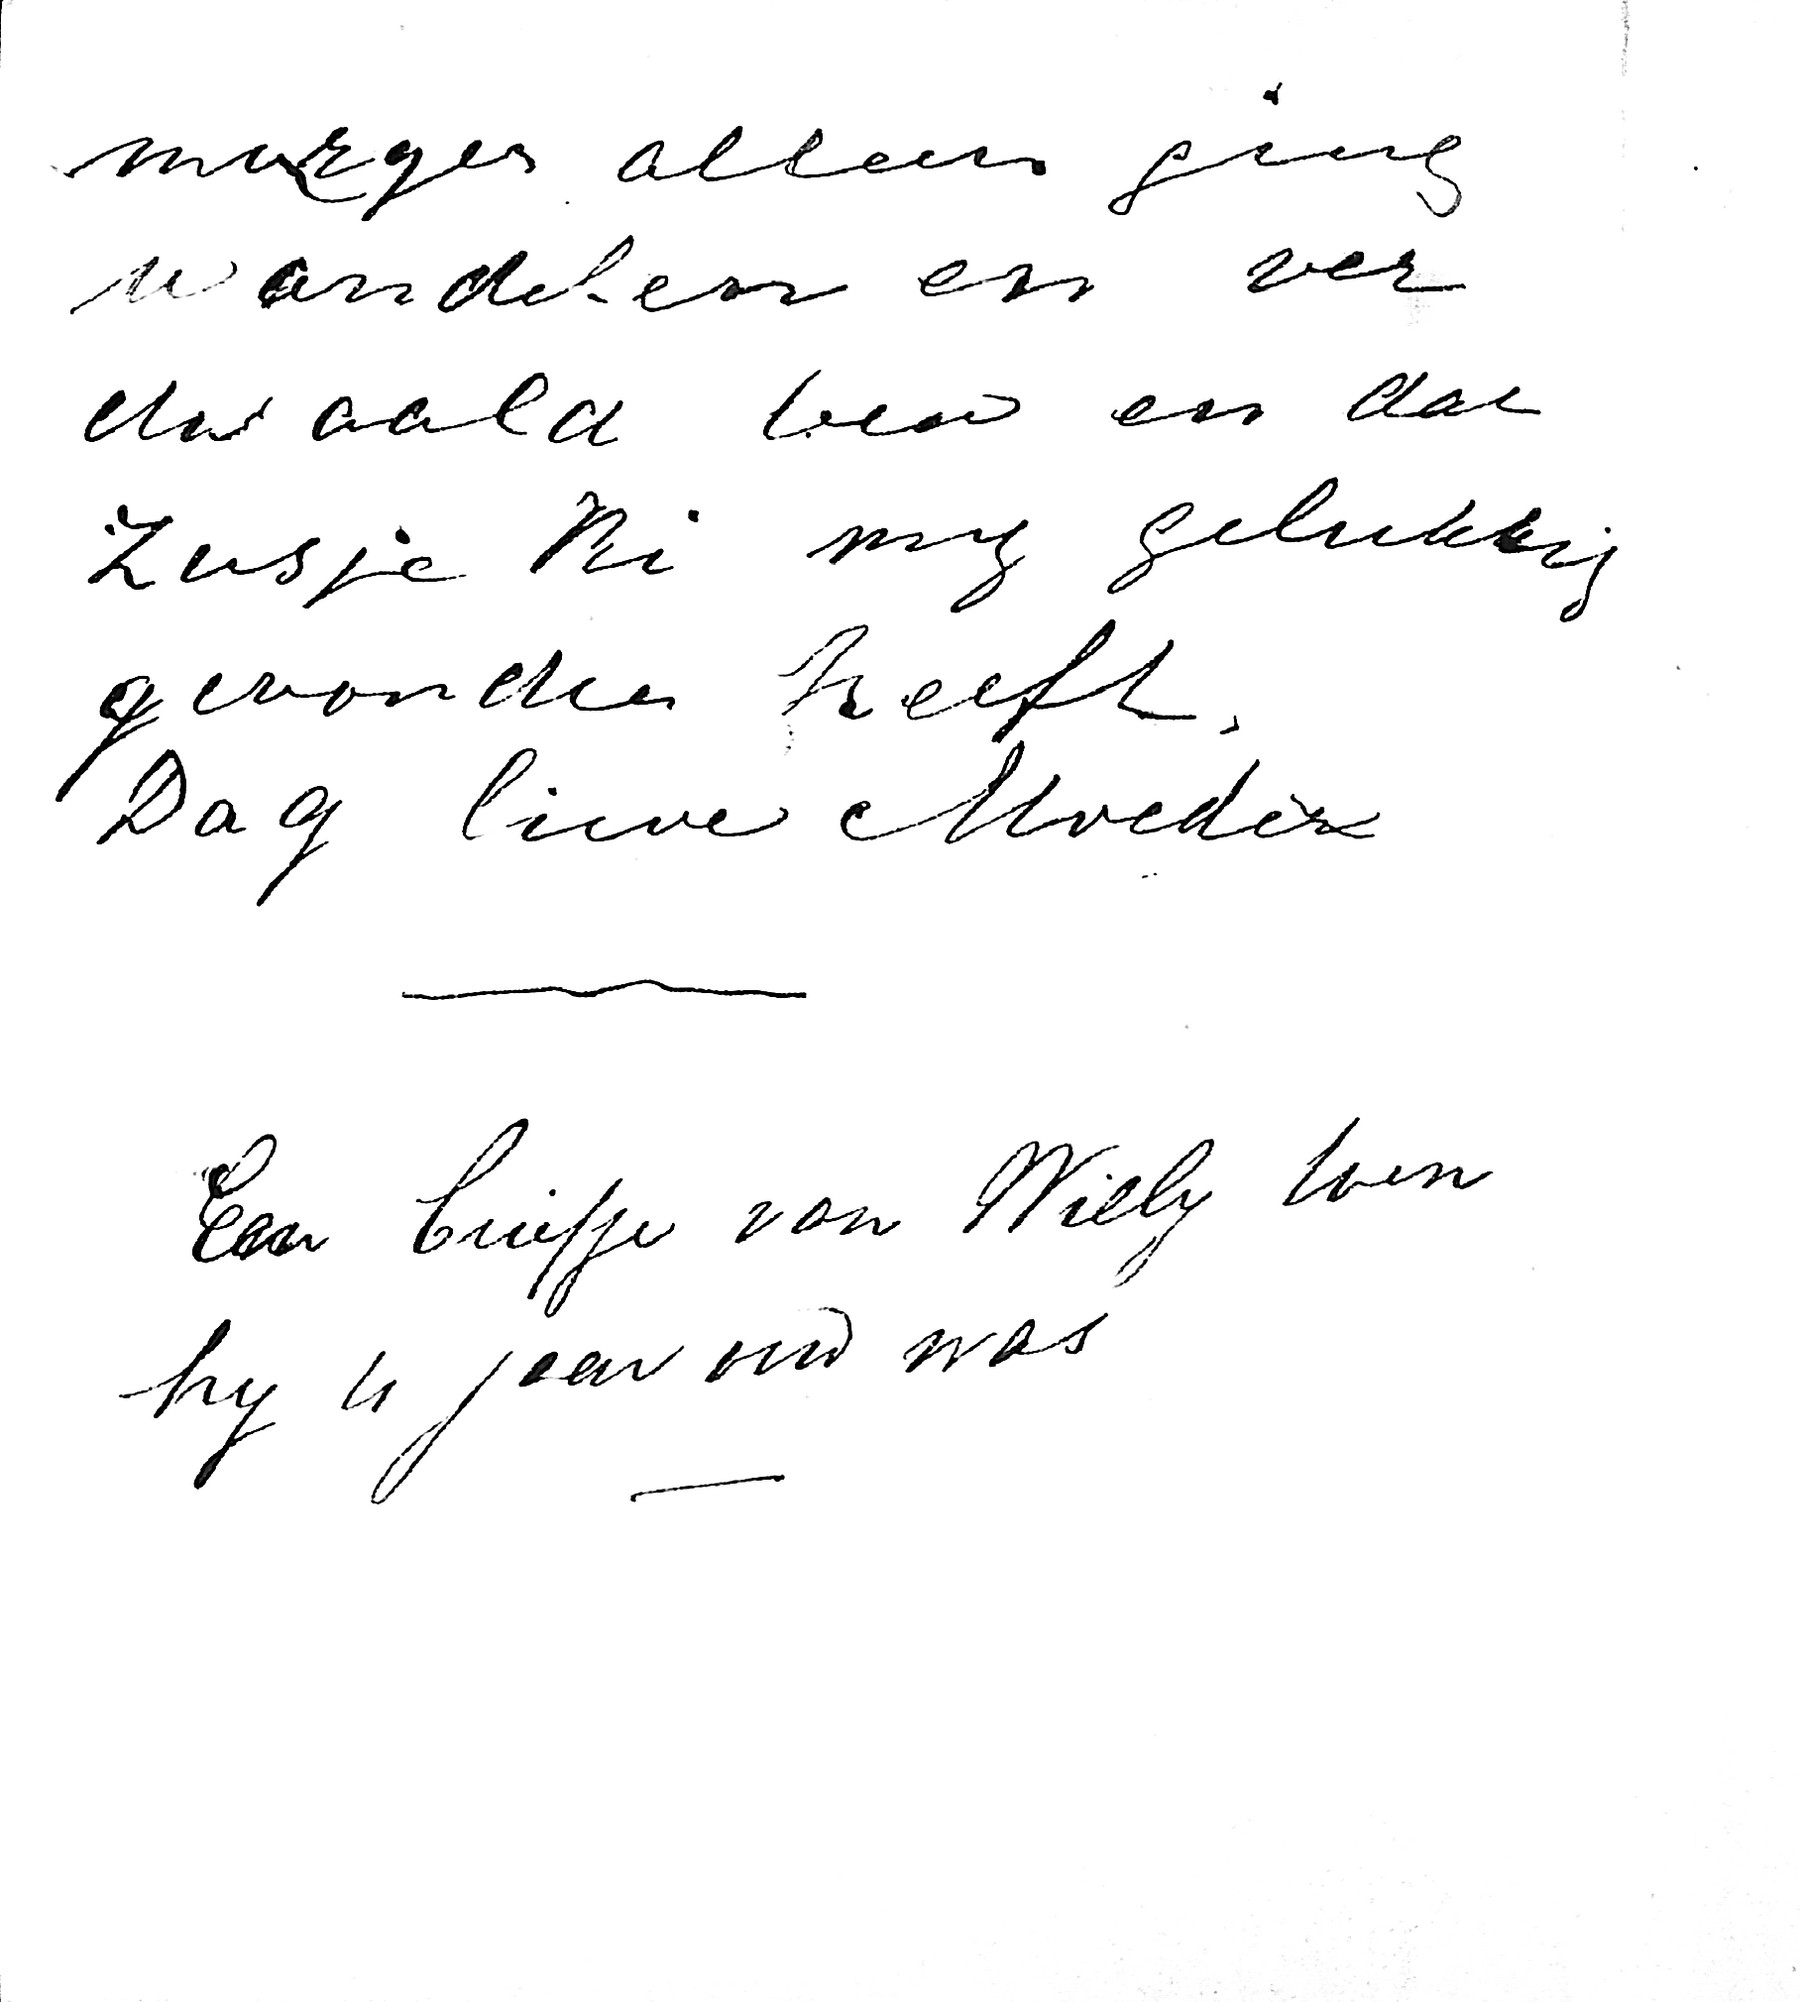 morgen alleen ging
wandelen en ver
dwaald ben en dat
Zusje Ri my gelukkig
gevonden heeft.
Dag lieve Moeder
Een briefje van Willy toen
hy 4 jaar oud was